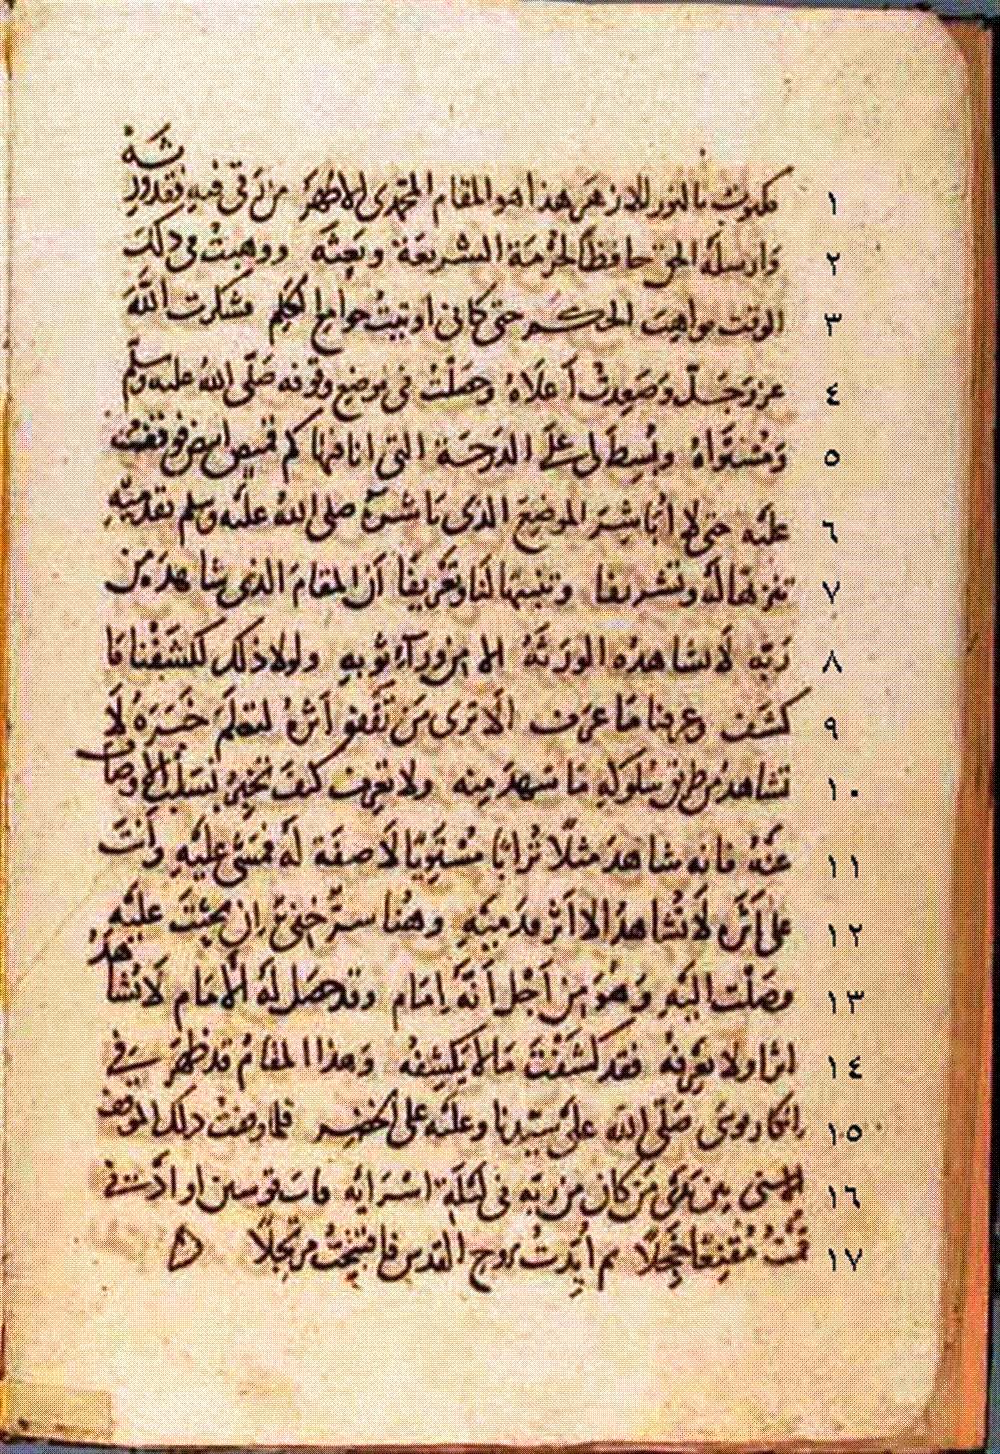 ١ مكتوب بالنور الازهر هذا هو المقام المحمدي الاطهر من رقي فيه فقد ورثه
٢ وارسله الحق حافظا لحرمة الشريعة وبعثه ووهبت في ذلك
٣ الوقت مواهب الحكم حتى كاني اوتيت جوامع الكلم فشكرت الله
٤ عز وجل وصعدت أعلاه وحصلت في موضع وقوفه صلى الله عليه وسلم
٥ ومستواه وبسط لي على الدرجة التي انا فيها كم قميص ابيض فوقفت
٦ عليه حتى لا أباشر الموضع الذي باشره صلى الله عليه وسلم بقدميه
٧ تنزيها له وتشريفا وتنبيها لنا وتعريفا أن المقام الذي شاهد من
٨ ربه لا يشاهده الورثة الا من وراء ثوبه ولولا ذلك لكشفنا ما
٩ كشف وعرفنا ما عرف الا ترى من تقفو أثره لتعلم خبره لا
١٠ تشاهد من طريق سلوكه ما شهد منه ولا تعرف كيف تخبر بسلب الاوصاف
١١ عنه فانه شاهد مثلا ترابا مستويا لا صفة له فمشى عليه وأنت
١٢ على أثره لا تشاهد الا أثر قدميه وهنا سر خفي إن بحثت عليه
١٣ وصلت اليه وهو من أجل أنه إمام وقد حصل له الأمام لا يشاهد
١٤ اثرا ولا يعرفه فقد كشفت ما لا يكشفه وهذا المقام قد ظهر في
١٥ انكار موسى صلى الله على سيدنا وعليه على الخضر فلما وقفت ذلك الموقف
١٦ الاسنى بين يدي من كان من ربه في ليلة اسرائه قاب قوسين او أدنى
١٧ قمت مقنعا خجلا ثم ايدت بروح القدس فافتتحت مرتجلا ه